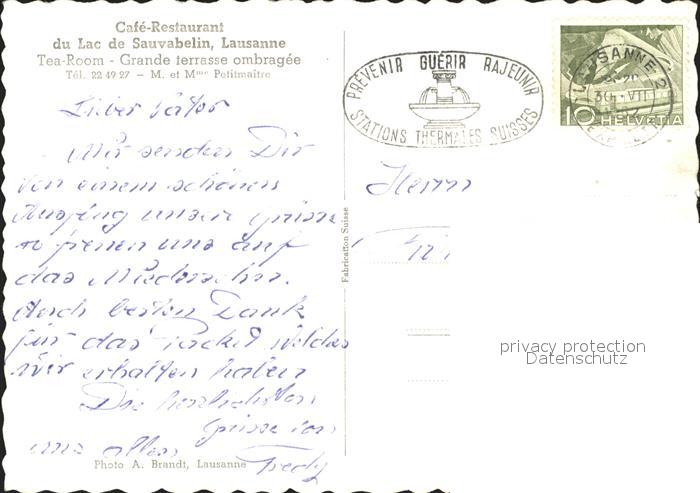 Café-Restaurant
du Lac de Sauvabelin, Lausanne
Tea-Room - Grande terrasse ombragée
Tél. 22 49 27 – M. et Mme Petitmaître
Lieber Vater
Wir senden Dir
von einem schönen
Ausflug unsere Grüsse
freuen uns auf
das Wiedersehn.
Auch besten Dank
für das Packet welches
wir erhalten haben
Die herzlichsten
Grüsse von
uns allen
Fredy
Photo A. Brandt, Lausanne
Fabrication Suisse
PRÉVENIR GUÉRIR RAJEUNIR
STATIONS THERMALES SUISSES
LAUSANNE 2
10 HELVETIA
Herrn
privacy protection
Datenschutz